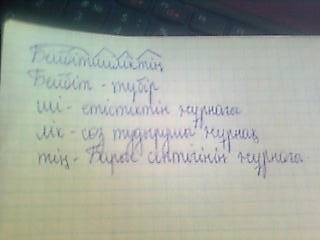 Бейбітшіліктің
Бейбіт - түбір
ші - етістіктің жұрнағы
лік - сөз тудырушы жұрнақ
тің - Барыс септігінің жұрнағы